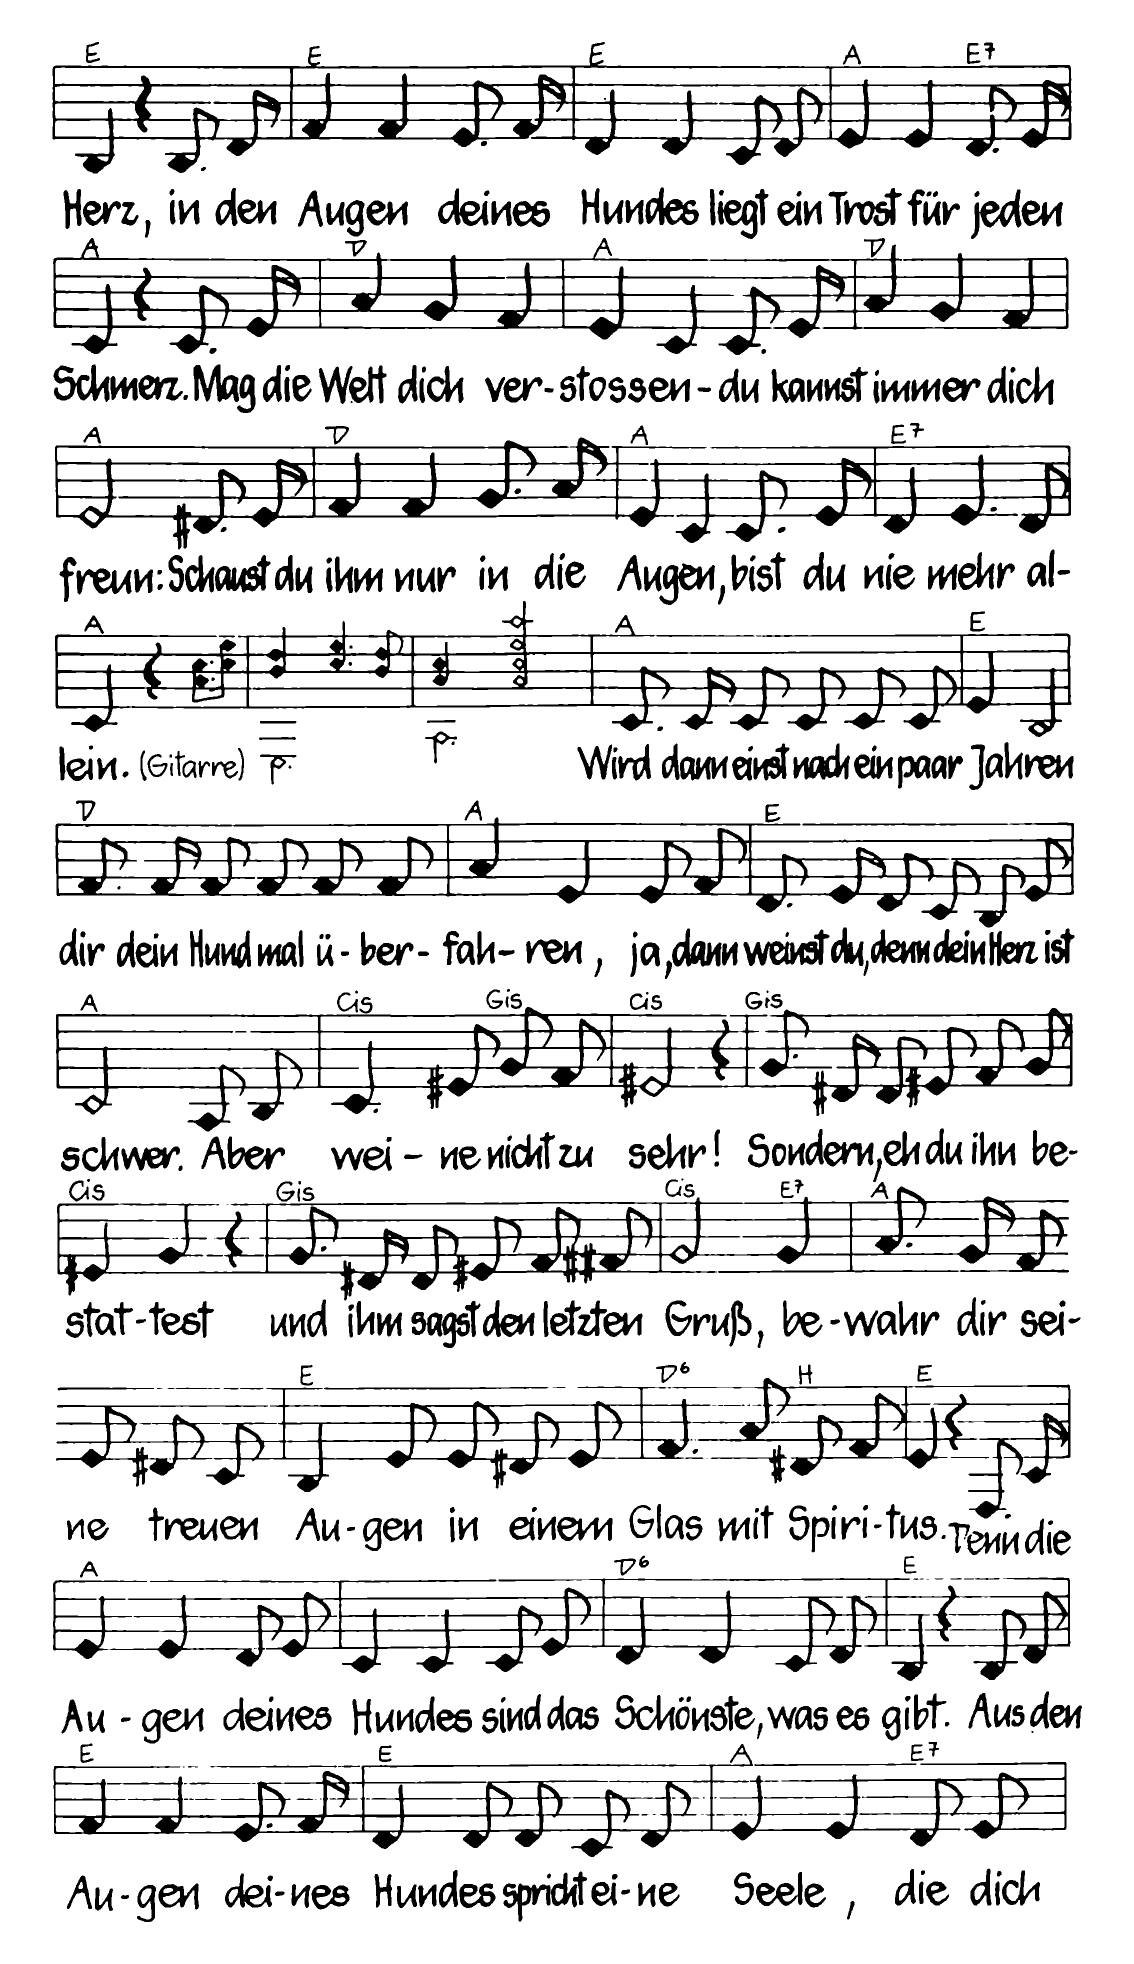 E E E A E7
Herz, in den Augen deines Hundes liegt ein Trost für jeden
A D A D
Schmerz. Mag die Welt dich ver-stossen- du kannst immer dich
A D A E7
freun: Schaust du ihm nur in die Augen, bist du nie mehr al-
A A E
lein. (Gitarre) Wird dann einst nach ein paar Jahren
D A E
dir dein Hund mal ü-ber-fah-ren, ja, dann weinst du, denn dein Herz ist
A Cis Gis Cis Gis
schwer. Aber wei-ne nicht zu sehr! Sondern, eh du ihn be-
Cis Gis Cis E7 A
stat-test und ihm sagst den letzten Gruß, be-wahr dir sei-
E D6 H E
ne treuen Au-gen in einem Glas mit Spiri-tus. Denn die
A D6 E
Au-gen deines Hundes sind das Schönste, was es gibt. Aus den
E E A E7
Au-gen dei-nes Hundes spricht ei-ne Seele, die dich